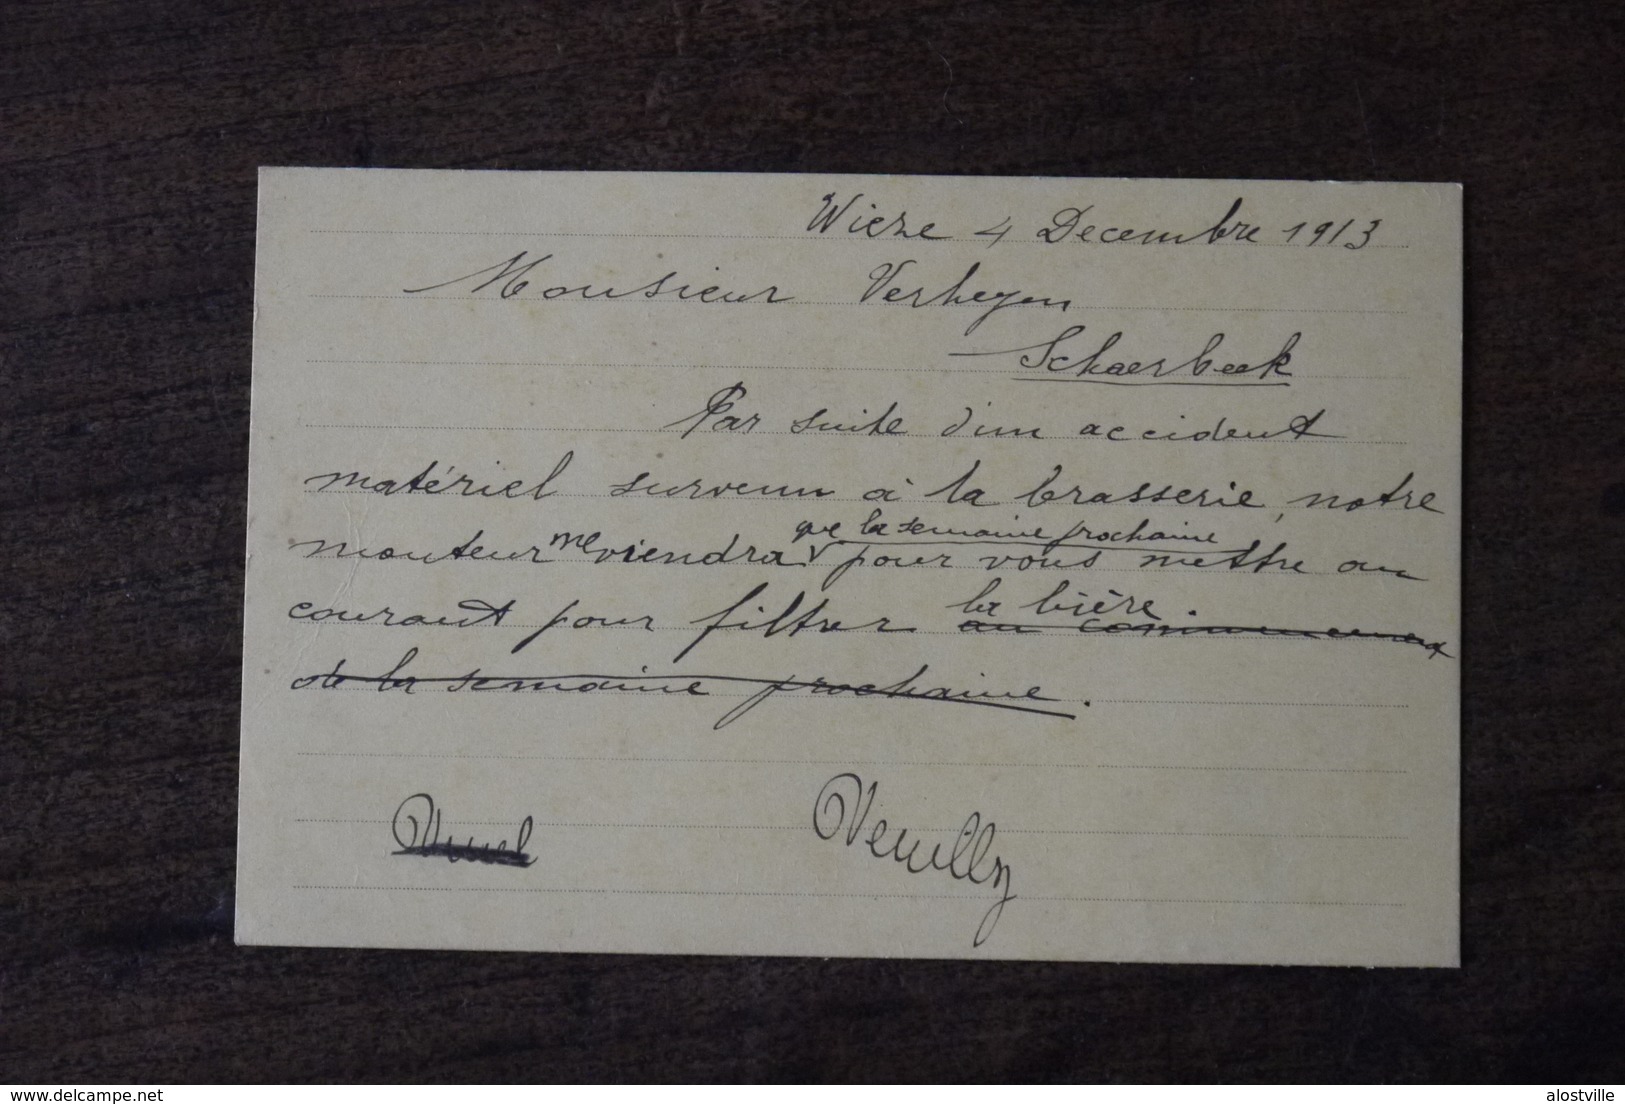 Wieze 4 Decembre 1913
Monsieur Verheyen
Schaerbeek
Par suite d'un accident
matériel survenu à la brasserie, notre
que la semaine prochaine
monteur ne viendra pour vous mettre au
la bière.
courant pour filtrer au commencement
de la semaine prochaine.
delcampe.net
alostville